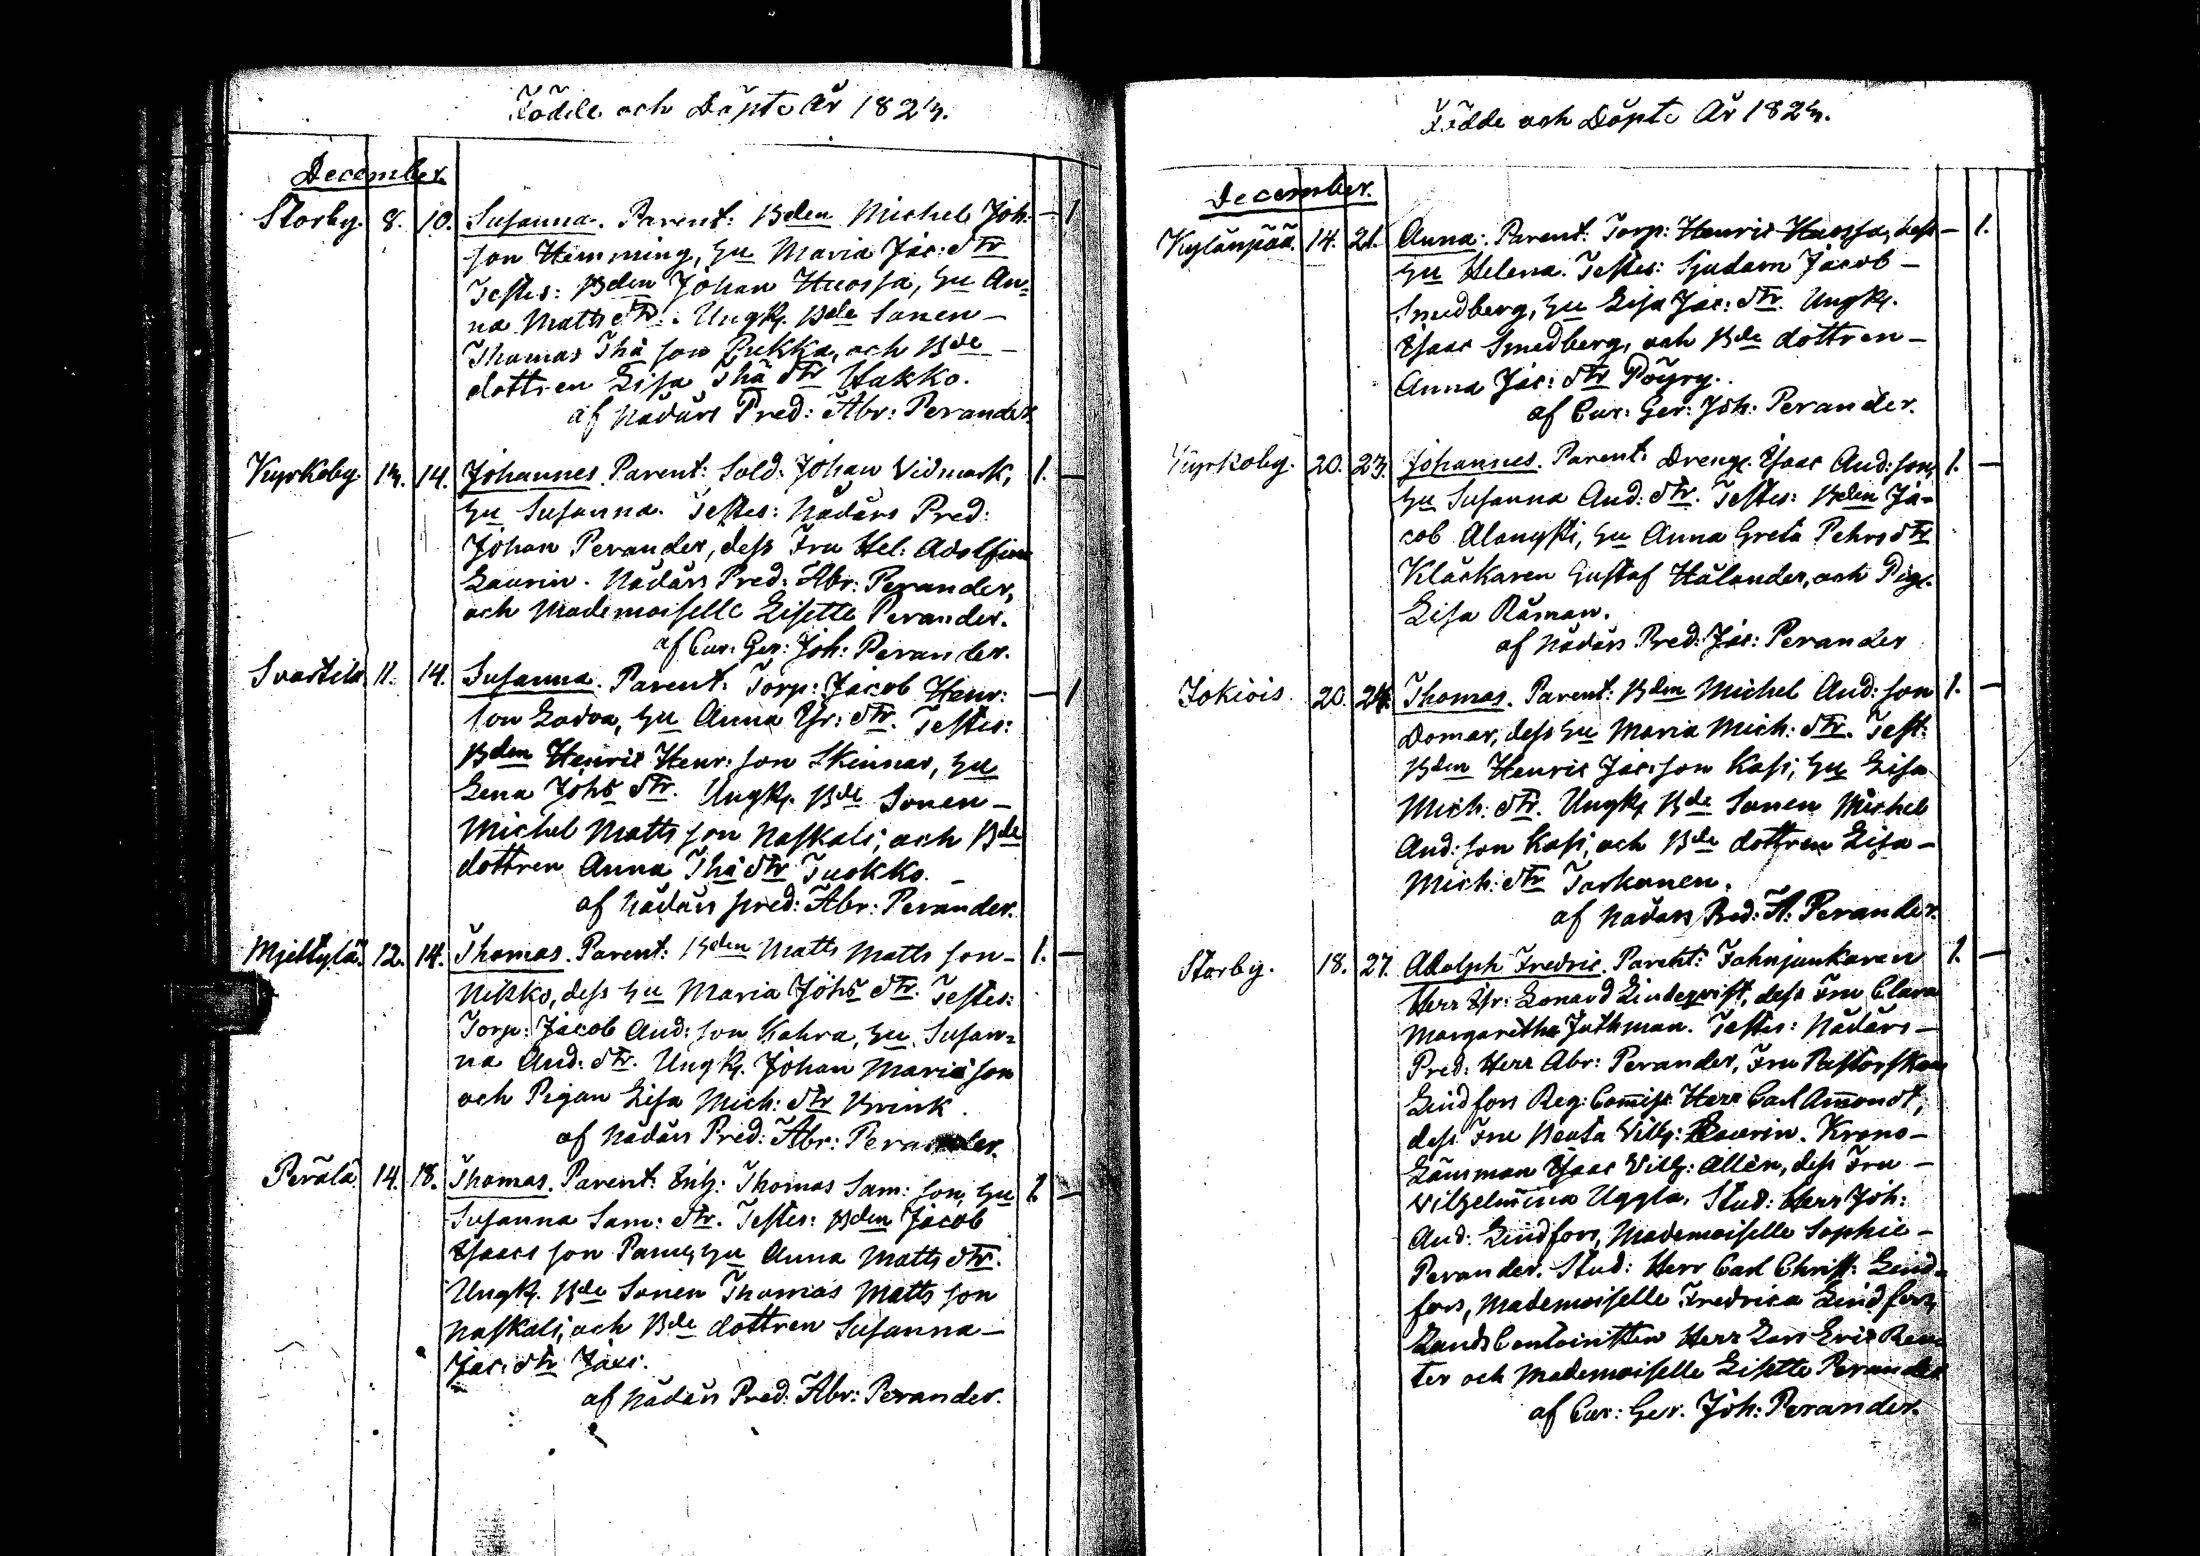 Födde och Döpte År 1823.
December.
Storby. 8. 10. Susanna. Parent: Bden Michel Joh: — 1
son Hemming, hu Maria Jac: dtr
Testes: Bden Johan Huossa, hu An=
na Matts dtr. Ungk. Bde Sonen —
Thomas Thō son Pukka, och Bde —
dottren Lisa Thō dtr Hakko.
af Nådårs Pred: Abr: Perander.
Kyrkoby. 13. 14. Johannes. Parent: Sold: Johan Vidmark, 1. —
hu Susanna. Testes: Nådårs Pred:
Johan Perander, dess Fru Hel: Adolfina
Laurin. Nådårs Pred: Abr: Perander,
och Mademoiselle Lisette Perander.
af Cur: Ger: Joh: Perander.
Svartila 11. 14. Susanna. Parent: Torp: Jacob Henr: — 1
son Ladva, hu Anna Er: dtr. Testes:
Bden Henric Henr: son Skinnar, hu
Lena Johs dtr. Ungk. Bde Sonen —
Michel Matts son Naskali, och Bde
dottren Anna Thō dtr Tuokko. —
af Nådårs pred: Abr: Perander.
Mjettylä. 12. 14. Thomas. Parent: Bden Matts Matts son — 1. —
Nikko, dess hu Maria Johs dtr. Testes:
Torp: Jacob And: son Kahra, hu Susan=
na And: dtr. Ungk. Johan Mariæ son
och Pigan Lisa Mich: dtr Brink.
af Nådårs Pred: Abr: Perander.
Perälä 14. 18. Thomas. Parent: Enh: Thomas Sam: son, hu 1. —
Susanna Sam: dtr. Testes: Bden Jacob
Isaacs son Panu, hu Anna Matts dtr.
Ungk. Bde Sonen Thomas Matts son
Naskali, och Bde dottren Susanna —
Jac: dtr
af Nådårs Pred: Abr: Perander.
Födde och Döpte År 1823.
December.
Kylänpää. 14. 21. Anna. Parent: Torp: Henric Huossa, dess — 1.
hu Helena. Testes: Sjudarn Jacob —
Smedberg, hu Lisa Jac: dtr. Ungk.
Isaac Smedberg, och Bde dottren —
Anna Jac: dtr Pöyry.
af Cur: Ger: Joh: Perander.
Kyrkoby. 20. 23. Johannes. Parent: Dreng. Isaac And: son, 1. —
hu Susanna And: dtr. Testes: Bden Ja=
cob Alangski, hu Anna Greta Pehrs dtr
Klåckaren Gustaf Hålander, och Pig.
Lisa Råman.
af Nådårs Pred: Jac: Perander
Jokiois. 20. 24. Thomas. Parent: Bden Michel And: son 1. —
Domar, dess hu Maria Mich: dtr. Test:
Bden Henric Jac: son Kasi, hu Lisa
Mich: dtr. Ungk. Bde Sonen Michel
And: son Kasi, och Bde dottren Lisa —
Mich: dtr Tarkanen.
af Nådårs Pred: A: Perander.
Storby. 18. 27. Adolph Fredric. Parent: Fahnjunkaren 1. —
Herr Er: Lenard Lindeqvist, dess Fru Clara
Margaretha Juthman. Testes: Nådårs —
Pred: Herr Abr: Perander, Fru Pastorskan
Lindfors Reg: Comiss Herr Carl Amondt,
dess Fru Beata Vilh: Laurin. Krono —
Länsman Isaac Vilh: Allén, dess Fru —
Vilhelmina Uggla. Stud: Herr Joh:
And: Lindfors, Mademoiselle Sophie —
Perander. Stud: Herr Carl Christ: Lind=
fors, Mademoiselle Fredrica Lindfors,
Herr Lars Eric
ter och Mademoiselle Lisette Perander
af Cur: Ger. Joh: Perander.